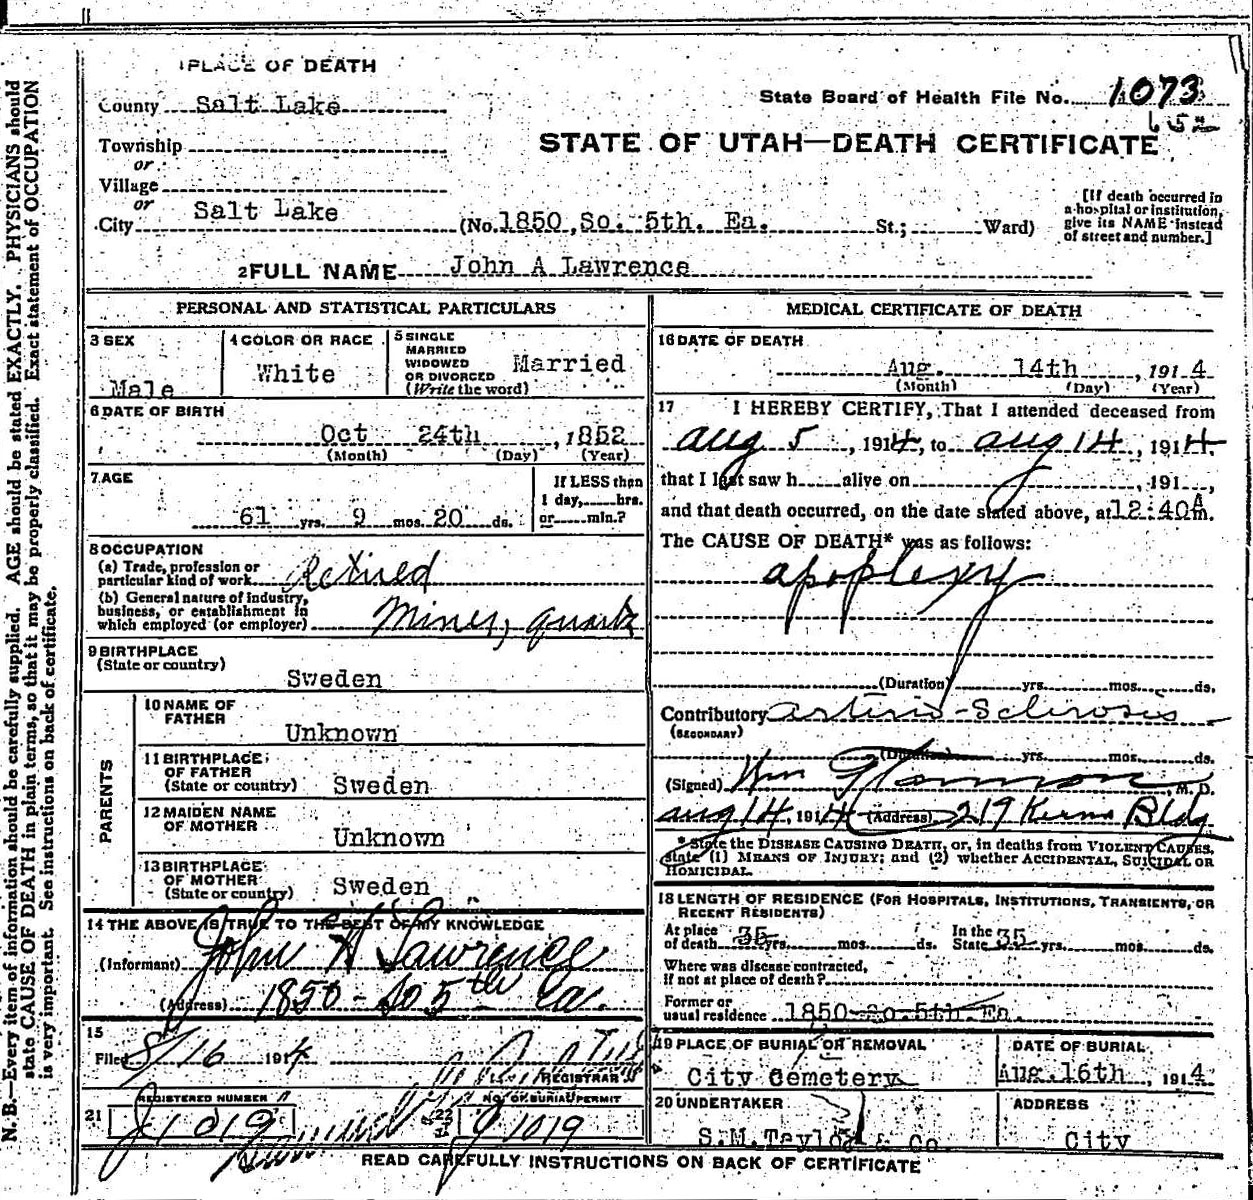 1 PLACE OF DEATH
County Salt Lake
State Board of Health File No. 1073
Township
or
Village
or
City Salt Lake
STATE OF UTAH—DEATH CERTIFICATE
(No. 1850 So. 5th. Ea. St.; Ward)
[If death occurred in
a hospital or institution,
give its NAME instead
of street and number.]
2 FULL NAME John A Lawrence
PERSONAL AND STATISTICAL PARTICULARS
3 SEX
Male
4 COLOR OR RACE
White
5 SINGLE
MARRIED
WIDOWED
OR DIVORCED
(Write the word)
Married
6 DATE OF BIRTH
Oct 24th, 1852
(Month) (Day) (Year)
7 AGE
61 yrs. 9 mos. 20 ds.
If LESS than
1 day, hrs.
or min.?
8 OCCUPATION
(a) Trade, profession or
particular kind of work Retired
(b) General nature of industry,
business, or establishment in
which employed (or employer) Miner, quartz
9 BIRTHPLACE
(State or country)
Sweden
PARENTS
10 NAME OF
FATHER
Unknown
11 BIRTHPLACE
OF FATHER
(State or country) Sweden
12 MAIDEN NAME
OF MOTHER
Unknown
13 BIRTHPLACE
OF MOTHER
(State or country) Sweden
14 THE ABOVE IS TRUE TO THE BEST OF MY KNOWLEDGE
(Informant) John H Lawrence
(Address) 1850 - So 5th Ea.
15
Filed 8/16 1914
REGISTRAR
REGISTERED NUMBER
21 J1019
No. OF BURIAL PERMIT
22 J1019
MEDICAL CERTIFICATE OF DEATH
16 DATE OF DEATH
Aug. 14th, 1914
(Month) (Day) (Year)
17 I HEREBY CERTIFY, That I attended deceased from
Aug 5, 1914, to Aug 14, 1914.
that I last saw h alive on , 191 ,
and that death occurred, on the date stated above, at 12:40A m.
The CAUSE OF DEATH* was as follows:
apoplexy
(Duration) yrs. mos. ds.
Contributory Arterio-Sclerosis
(SECONDARY)
(Duration) yrs. mos. ds.
(Signed) Wm , M. D.
Aug 14, 1914 (Address) 219 Kearns Bldg
* State the DISEASE CAUSING DEATH, or, in deaths from VIOLENT CAUSES,
state (1) MEANS OF INJURY; and (2) whether ACCIDENTAL, SUICIDAL OR
HOMICIDAL.
18 LENGTH OF RESIDENCE (FOR HOSPITALS, INSTITUTIONS, TRANSIENTS, OR
RECENT RESIDENTS)
At place
of death 35 yrs. mos. ds.
In the
State 35 yrs. mos. ds.
Where was disease contracted,
if not at place of death?
Former or
usual residence 1850 So. 5th. Ea.
19 PLACE OF BURIAL OR REMOVAL
City Cemetery
DATE OF BURIAL
Aug. 16th, 1914
20 UNDERTAKER
S.M. Taylor & Co.
ADDRESS
City
READ CAREFULLY INSTRUCTIONS ON BACK OF CERTIFICATE
N. B.—Every item of information should be carefully supplied. AGE should be stated EXACTLY. PHYSICIANS should
state CAUSE OF DEATH in plain terms, so that it may be properly classified. Exact statement of OCCUPATION
is very important. See instructions on back of certificate.